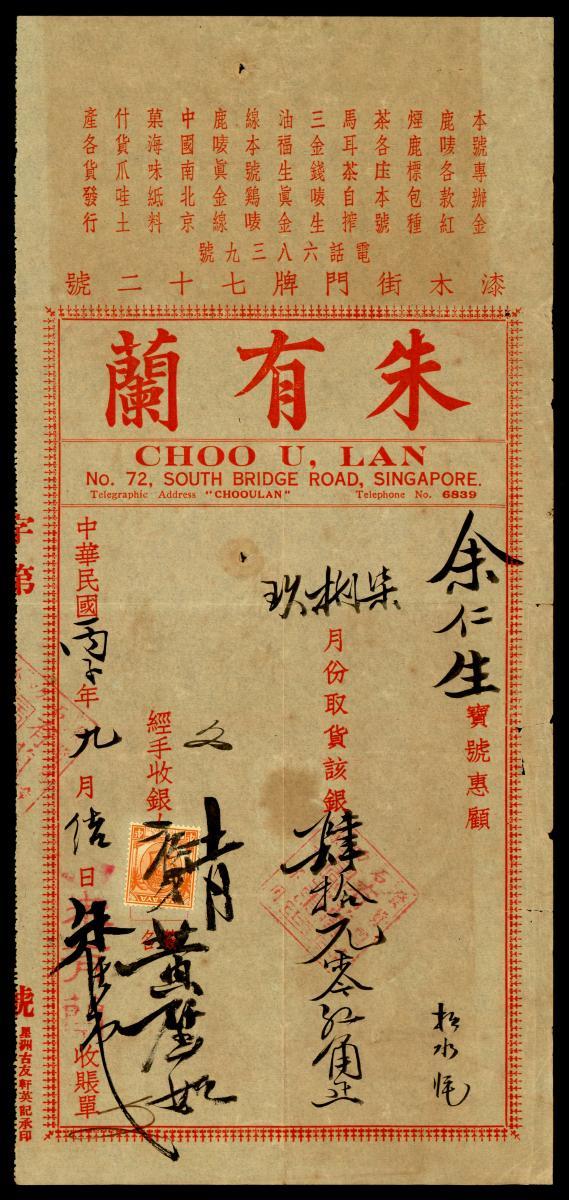 本號專辦金
鹿嘜各款紅
煙鹿標包種
茶各庄本號
馬耳茶自搾
三金錢嘜生
油福生眞金
線本號鷄嘜
鹿嘜眞金線
中國南北京
菓海味紙料
什貨爪哇土
產各貨發行
電話六八三九號
漆木街門牌七十二號
朱有蘭
CHOO U, LAN
No. 72, SOUTH BRIDGE ROAD, SINGAPORE.
Telegraphic Address "CHOOULAN" Telephone No. 6839
余仁生寶號惠顧
柒捌玖月份取貨該銀肆拾元零
經手收銀
黃
中華民國丙子年九月佶日收賬單
字第
號
星洲古友軒英記承印